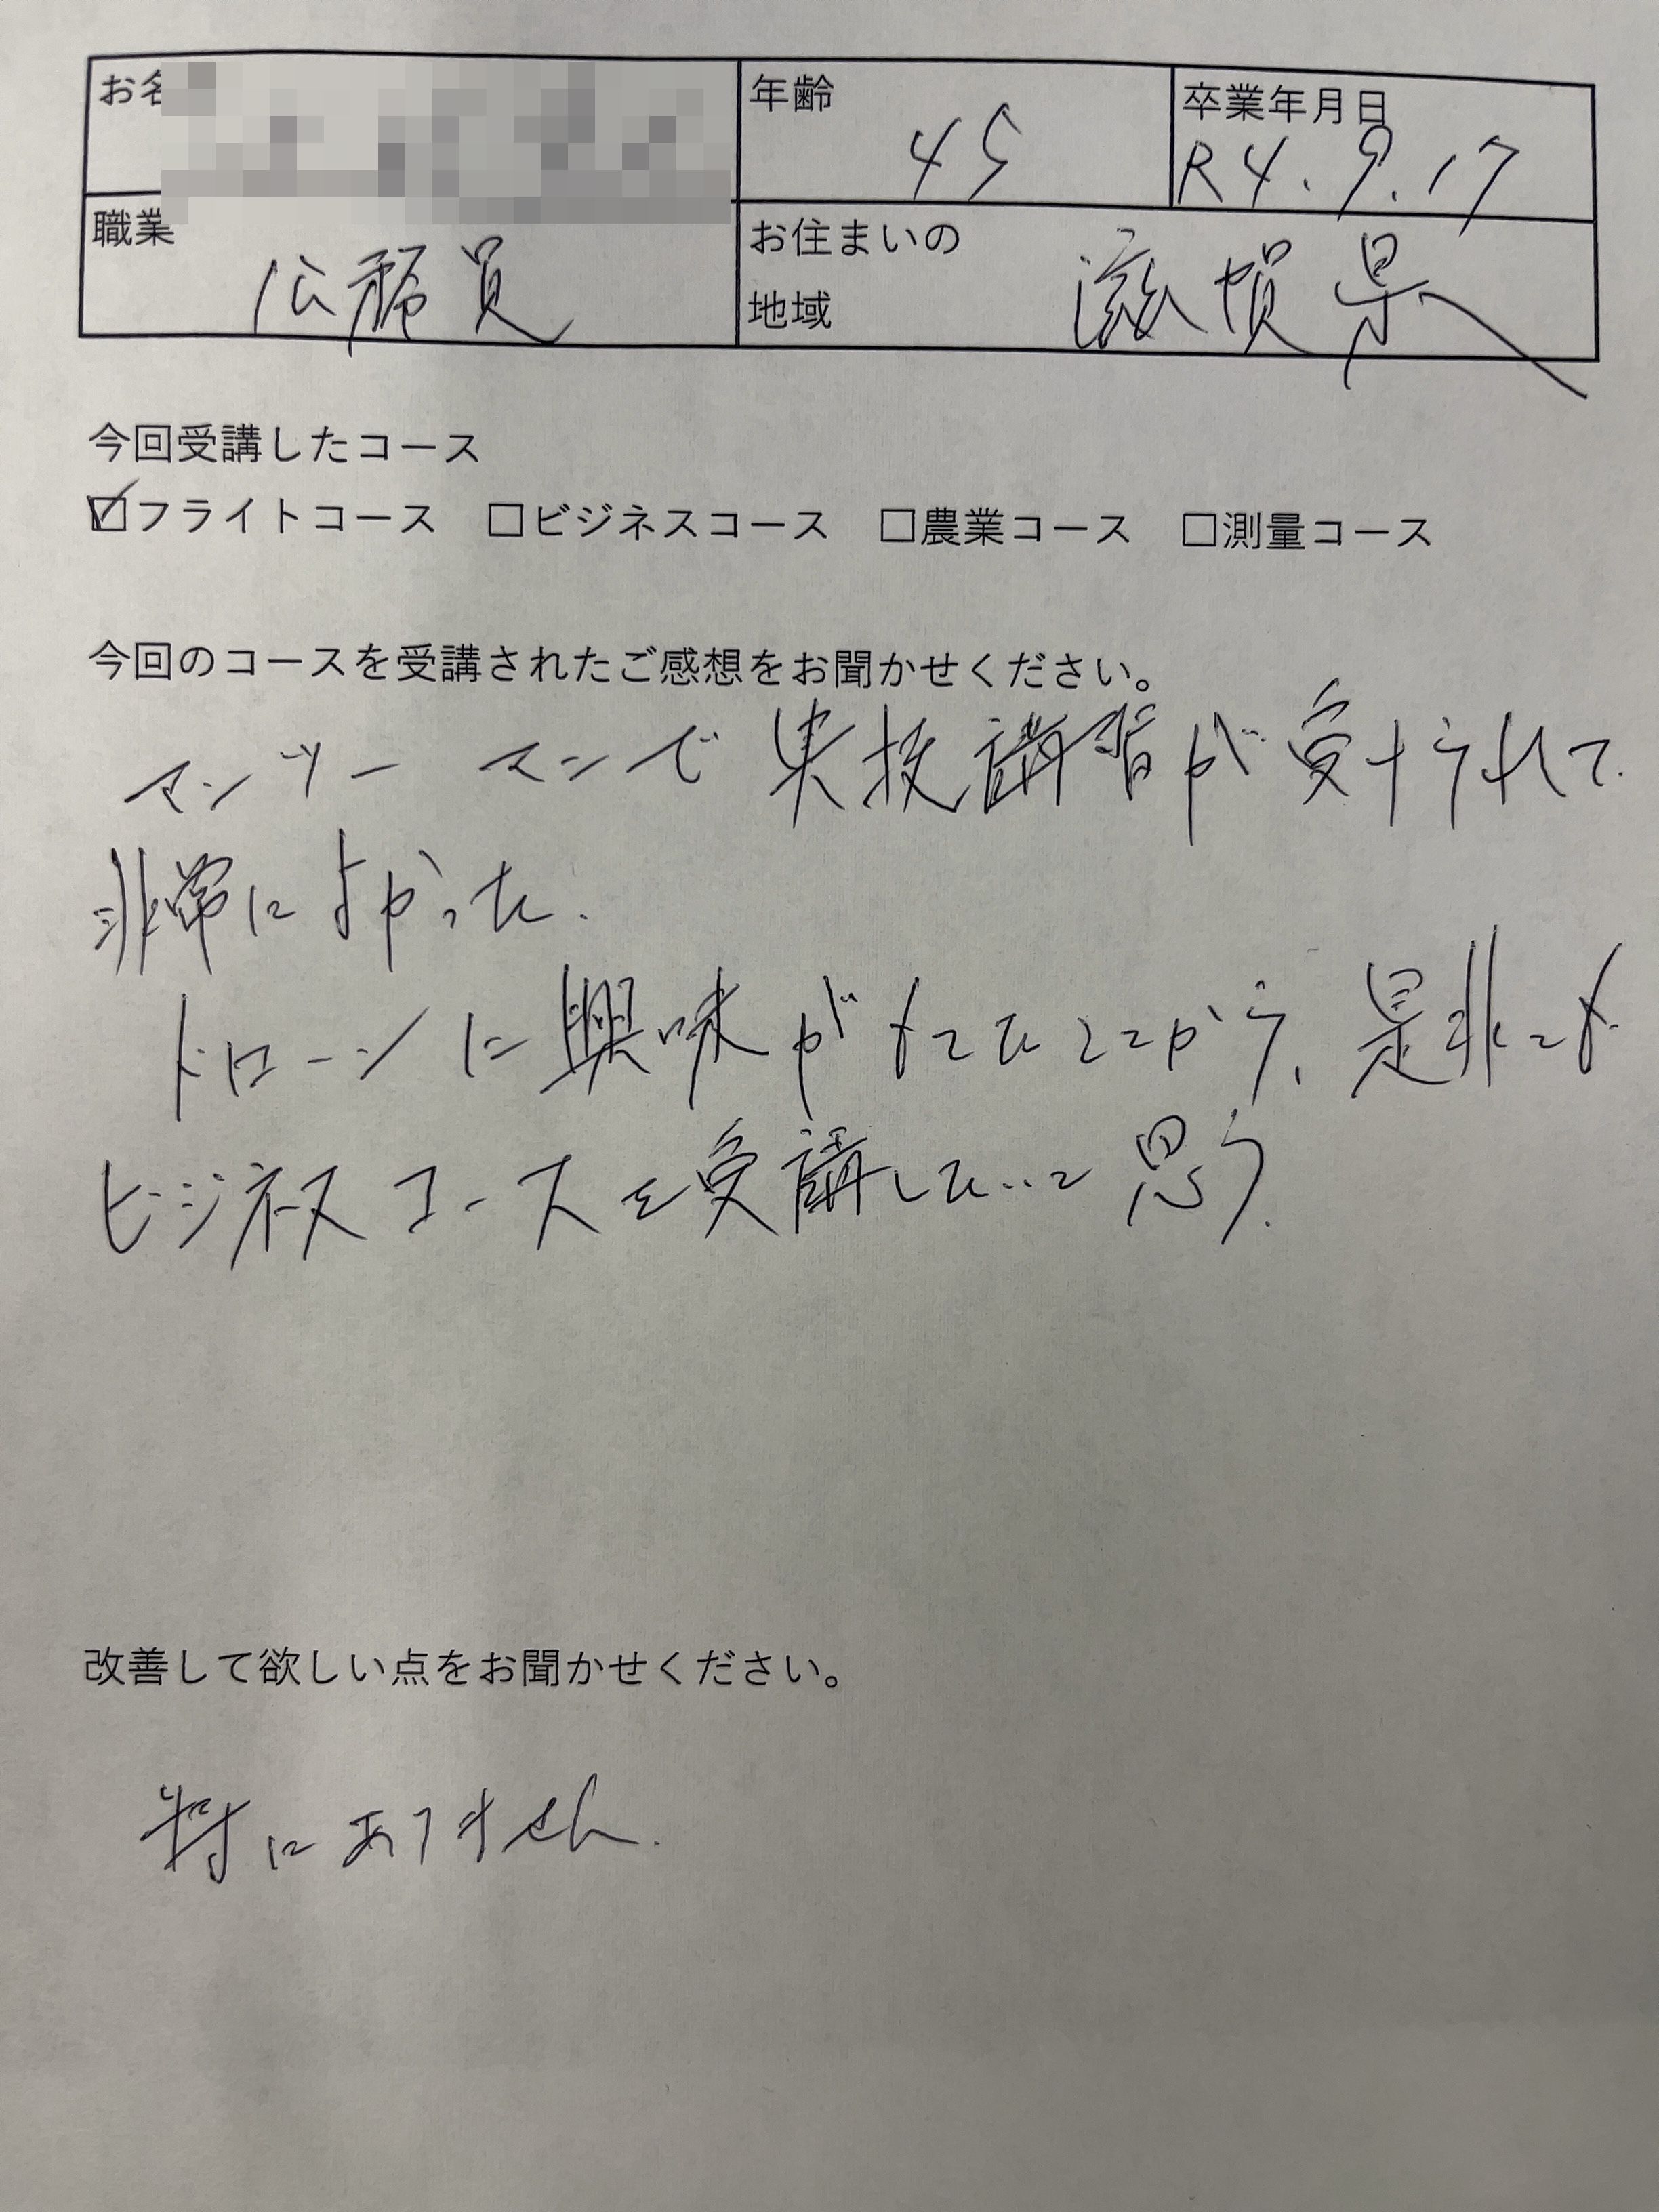 お名
年齢
45
卒業年月日
R4.9.17
職業
公務員
お住まいの
地域
滋賀県
今回受講したコース
☑フライトコース □ビジネスコース □農業コース □測量コース
今回のコースを受講されたご感想をお聞かせください。
マンツーマンで実技講習が受けられて
非常によかった.
ドローンに興味がもてたことから、是非とも
ビジネスコースを受講したいと思う.
改善して欲しい点をお聞かせください。
特にありません.